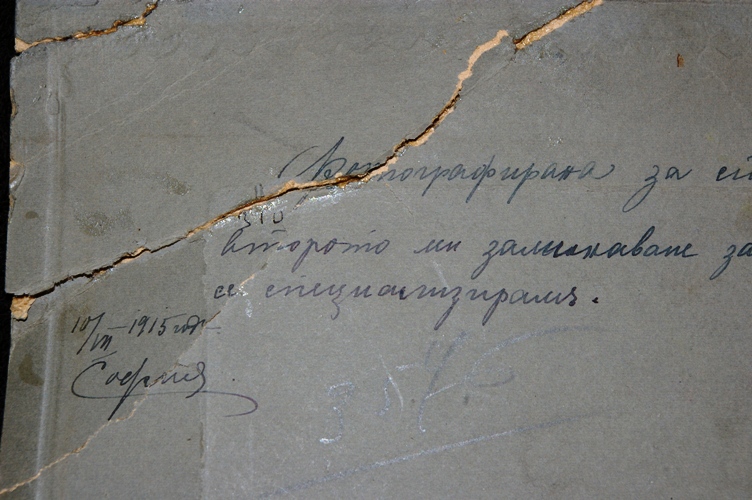 Фотографирана за сп
второто ми заминаване за
се специализирамъ.
10/VII - 1915 год.
София